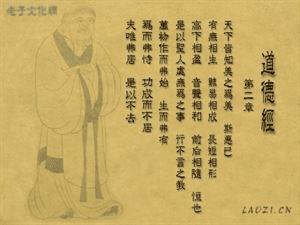 道德經
第二章
天下皆知美之為美 斯惡已
有無相生 難易相成 長短相形
高下相盈 音聲相和 前后相隨 恆也
是以聖人處無為之事 行不言之教
萬物作而弗始 生而弗有
為而弗恃 功成而不居
夫唯弗居 是以不去
老子文化網
LAOZI.CN